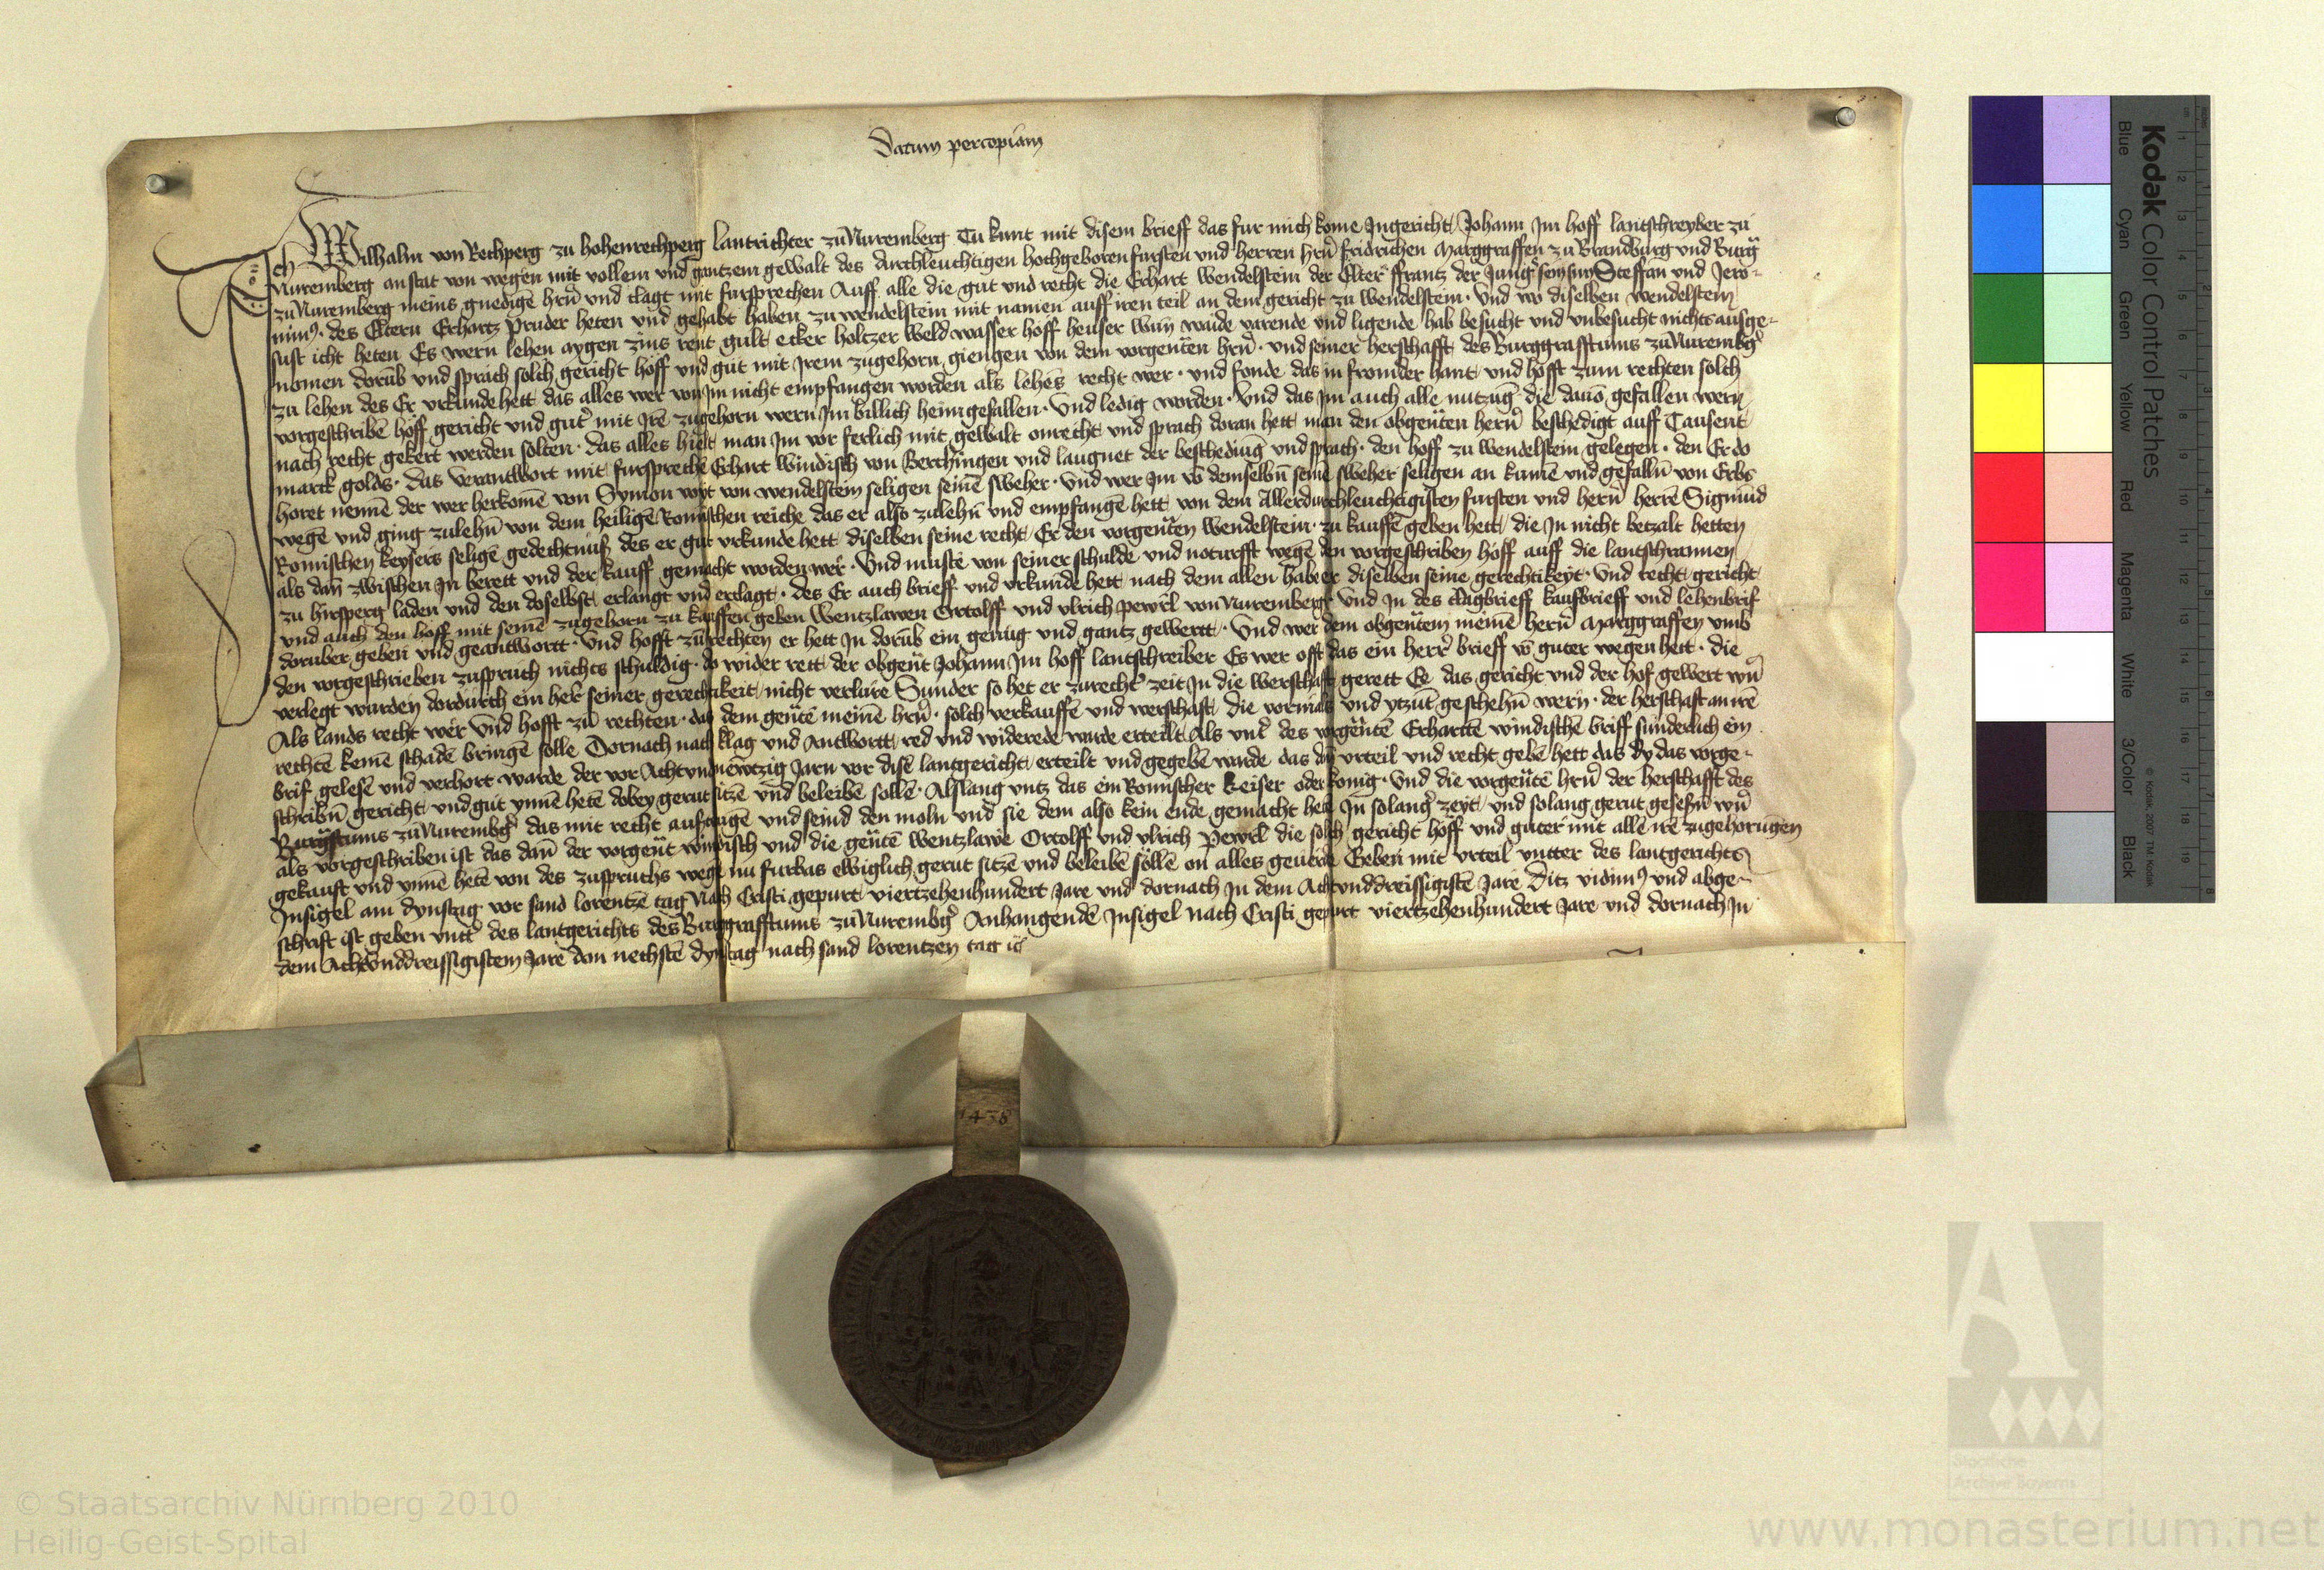 Datum per copiam
Ich Wilhalm von Rechperg zu hohenrechperg lantrichter zu Nuremberg Tu kunt mit disem brieff das fur mich kome Ingericht Johann Im hoff lantschreyber zu
Nuremberg anstat von wegen mit vollem und gantzem gewalt des durchleuchtigen hochgeboren fursten und herren hrn̄ fridrichen Marggraffen zu Brandburg und Burg̃
zu Nuremberg meins gnedigē hrn̄ und clagt mit fursprechen Auff alle die gut vnd recht die Erhart Wendelstein der Elter ffrantz der Jung sein sun Steffan und Jero-
nimꝰ des Eltern Erhartz Pruder heten und gehabt haben zu wendelstein mit namen auff iren teil an dem gericht zu wendelstein· Und wo diselben wendelstein
sust icht heten Es wern lehen aygen zins rent gult ecker holtzer weld wasser hoff heuser wun waide varende und ligende hab besucht und vnbesucht nichts ausge-
nomen dorūb und sprach solch gericht hoff und gut mit Irem zugehorn giengen von dem vorgenten hrn̄· und seiner herschafft des Burggrafftums zu Nurembg̃
zu lehen des Er vrkunde hett das alles wer von Im nicht empfangen worden als lehens recht wer· und fonde das in fromder hant und hofft zum rechten solch
vorgeschribē hoff gericht und gut mit Irē zugehorn wern Im billich heimgefallen· Und ledig worden· Und das Im auch alle nutzūg die dauō gefallen wern
nach recht gekert werden solten· das alles hielt man Im vor ferlich mit gewalt onrecht und sprach doran hett man den obgenten hern̄ beschedigt auff Tausent
marck golds· das verantwort mit fursprechē Erhart Windisch von Berchingen und laugnet der beschedīg und sprach· den hoff zu wendelstein gelegen· den Er do
horet nennē der wer herkomē von Symon voyt von wendelstein seligen seinē sweher· Und wer Im vō demselbn̄ seinē sweher seligen an kumē und gefalln̄ von Erbs
wegē und ging zulehn̄ von dem heiligē Romischen reiche das er also zulehn̄ und empfangē hett von dem Allerdurchleuchtigisten fursten und hern̄ herrē Sigmūd
Romischen keysers seligē gedechtnuß des er gut vrkunde hett diselben seine recht Er den vorgenten Wendelstein zu kauffē geben hett die In nicht betzalt hetten
als dan̄ zwischen In berett und der kauff gemacht worden wer· Und muste von seiner schulde und noturfft wegē den vorgeschriben hoff auff die lantschrannen
zu hirsperg laden und den doselbst erlangt und erclagt· des Er auch brieff und vrkunde hett nach dem allen hab er diselben seine gerechtikeyt· Und recht gericht
und auch den hoff mit seinē zugehorn zu kauffen geben Wentzlawen Ortolff und vlrich pewrl von Nuremberg Und In des clagbrieff kaufbrieff und lehenbrif
doruber geben und geantwortt· Und hofft zu rechten er hett In dorūb ein genug und gantz gewertt· Und wer dem obgenten meinē hern̄ Marggraffen vmb
den vorgeschrieben zuspruch nichts schuldig· do wider rett der obgent Johann Im hoff lantschreiber Es wer offt das ein herr brieff vō guter wegen hett· die
verlegt wurden dordurch ein her seiner gerechtikeit nicht verlure Sunder so het er zurecht zeit In die werschaft gerett Ee das gericht und der hof gewert wn̄
Als lands recht wer Und hofft zu rechten· das dem gentē meinē hrn̄· solch verkauffē und werschaft die vormals und ytzūt geschehn̄ wern· der herschaft an irē
rechtē keinē schadē bringē solle Dornach nach klag und Antwortt red und widerede warde erteilt Als vnt̃ des vorgentē Erharttē windischē briff sunderlich ein
brif gelesē und verhort warde der vor Achtvndnewtzig Jarn vor disē lantgericht erteilt und gegebē warde das dy vrteil und recht gebē hett das dy das vorge-
schribn̄ gericht und gut ynnē hetē dobey gerut sitzē und beleibē sollē· Alslang vntz das ein Romischer keiser oder konig· Und die vorgentē hrn̄ der herschafft des
Burgg̃ftums zu Nurembg̃ das mit recht aufgtragē und seind den moln und sie dem also kein ende gemacht hett In solang zeyt und solang gerut gesessn̄ wn̄
als vorgeschriben ist das dan̄ der vorgent windisch und die gentē Wentzlawe Ortolff und vlrich Pewrl die solch gericht hoff und guter mit allē irē zugehorūgen
gekauft und ynnē hetē von des zuspruchs wegē nu furbas ewiglich gerut sitzē und beleibē sollē on alles geuerde Geben mit vrteil vntter des lantgerichts
Insigel am dynstag vor sand lorentzē tag Nach Cristi gepurt viertzehenhundert Jare und dornach In dem Achtvnddreissigistē Jare Ditz vidimꝰ und abge-
schrift ist geben vntt̃ des lantgerichts des Burggrafftums zu Nurembg̃ Anhangendē Insigel nach Cristi gepurt viertzehenhundert Jare und dornach In
dem Achtvnddreissigistem Jare dan nechstē dynstag nach sand lorentzen tag
1438
Kodak Color Control Patches
Blue Cyan Green Yellow Red Magenta White 3/Color Black
© Kodak, 2007 TM: Kodak
Staatliche
Archive Bayerns
© Staatsarchiv Nürnberg 2010
Heilig-Geist-Spital
www.monasterium.net